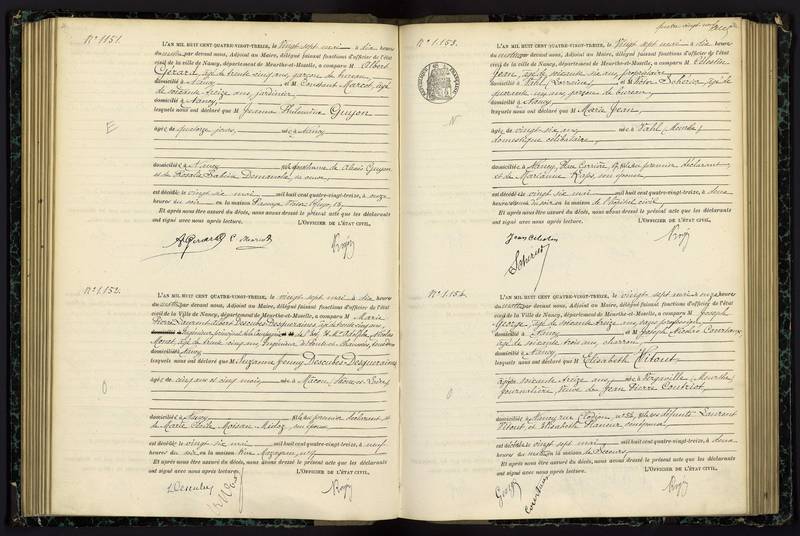 N° 1151.
L'AN MIL HUIT CENT QUATRE-VINGT-TREIZE, le vingt sept mai à dix heures
du matin, par devant nous, Adjoint au Maire, délégué faisant fonctions d'officier de l'état
civil de la ville de Nancy, département de Meurthe-et-Moselle, a comparu M Albert
Gérard, âgé de trente cinq ans, garçon de bureau,
domicilié à Nancy et M Constant Marcot, âgé
de soixante treize ans, jardinier,
domicilié à Nancy,
lesquels nous ont déclaré que M Jeanne Philomène Guyon
E
âgée de quatorze jours, née à Nancy
domiciliée à Nancy fille de Alexis Guyon
et de Rosalie
est décédée le vingt six mai mil huit cent quatre-vingt-treize, à onze
heures du soir, en la maison
Et après nous être assuré du décès, nous avons dressé le présent acte que les déclarants
ont signé avec nous après lecture. L'OFFICIER DE L'ÉTAT CIVIL,
A. Gérard
N° 1152.
L'AN MIL HUIT CENT QUATRE-VINGT-TREIZE, le vingt sept mai à dix heures
du matin, par devant nous, Adjoint au Maire, délégué faisant fonctions d'officier de l'état
civil de la Ville de Nancy, département de Meurthe-et-Moselle, a comparu M Marie
Pierre Laurent Albert Descubes Desgueraines, âgé de trente cinq ans,
domicilié à Nancy
lesquels nous ont déclaré que M Suzanne Jenny Descubes Desgueraines
O
âgée de cinq ans et cinq mois, née à Mâcon (Saône et Loire)
domiciliée à Nancy fille du premier déclarant et
de Marie
est décédée le vingt six mai mil huit cent quatre-vingt-treize, à neuf
heures du soir, en la maison rue Mazagran,
Et après nous être assuré du décès, nous avons dressé le présent acte que les déclarants
ont signé avec nous après lecture. L'OFFICIER DE L'ÉTAT CIVIL,
Descubes
N° 1153.
L'AN MIL HUIT CENT QUATRE-VINGT-TREIZE, le vingt sept mai à dix heures
du matin, par devant nous, Adjoint au Maire, délégué faisant fonctions d'officier de l'état
civil de la ville de Nancy, département de Meurthe-et-Moselle, a comparu M Célestin
Jean, âgé de soixante six ans, propriétaire
domicilié à (Lorraine) et M Victor Scherier, âgé de
quarante un ans, garçon de bureau,
domicilié à Nancy
lesquels nous ont déclaré que M Marie Jean,
N
âgée de vingt six ans née à Vahl (Meurthe)
domestique célibataire,
domiciliée à Nancy, Rue Carrière, fille du premier déclarant
et de Marianne Kaps, son épouse
est décédée le vingt six mai mil huit cent quatre-vingt-treize, à deux
heures du soir, en la maison de l'hôpital civil,
Et après nous être assuré du décès, nous avons dressé le présent acte que les déclarants
ont signé avec nous après lecture. L'OFFICIER DE L'ÉTAT CIVIL,
Jean Célestin
Scherier
N° 1154.
L'AN MIL HUIT CENT QUATRE-VINGT-TREIZE, le vingt sept mai à onze heures
du matin, par devant nous, Adjoint au Maire, délégué faisant fonctions d'officier de l'état
civil de la Ville de Nancy, département de Meurthe-et-Moselle, a comparu M Joseph
George, âgé de soixante treize ans, sans profession
domicilié à Nancy et M Joseph Nicolas Courtaux
âgé de soixante trois ans, charron,
domicilié à Nancy
lesquels nous ont déclaré que M Elisabeth Pitout
O
âgée de soixante treize ans, née à Vergaville (Meurthe)
journalière, Veuve de Jean Pierre
domiciliée à Nancy, rue Clodion, n° 52, fille des défunts Laurent
Pitout, et Elisabeth
est décédée le vingt six mai mil huit cent quatre-vingt-treize, à deux
heures du en la maison de Secours,
Et après nous être assuré du décès, nous avons dressé le présent acte que les déclarants
ont signé avec nous après lecture. L'OFFICIER DE L'ÉTAT CIVIL,
George
Courtaux